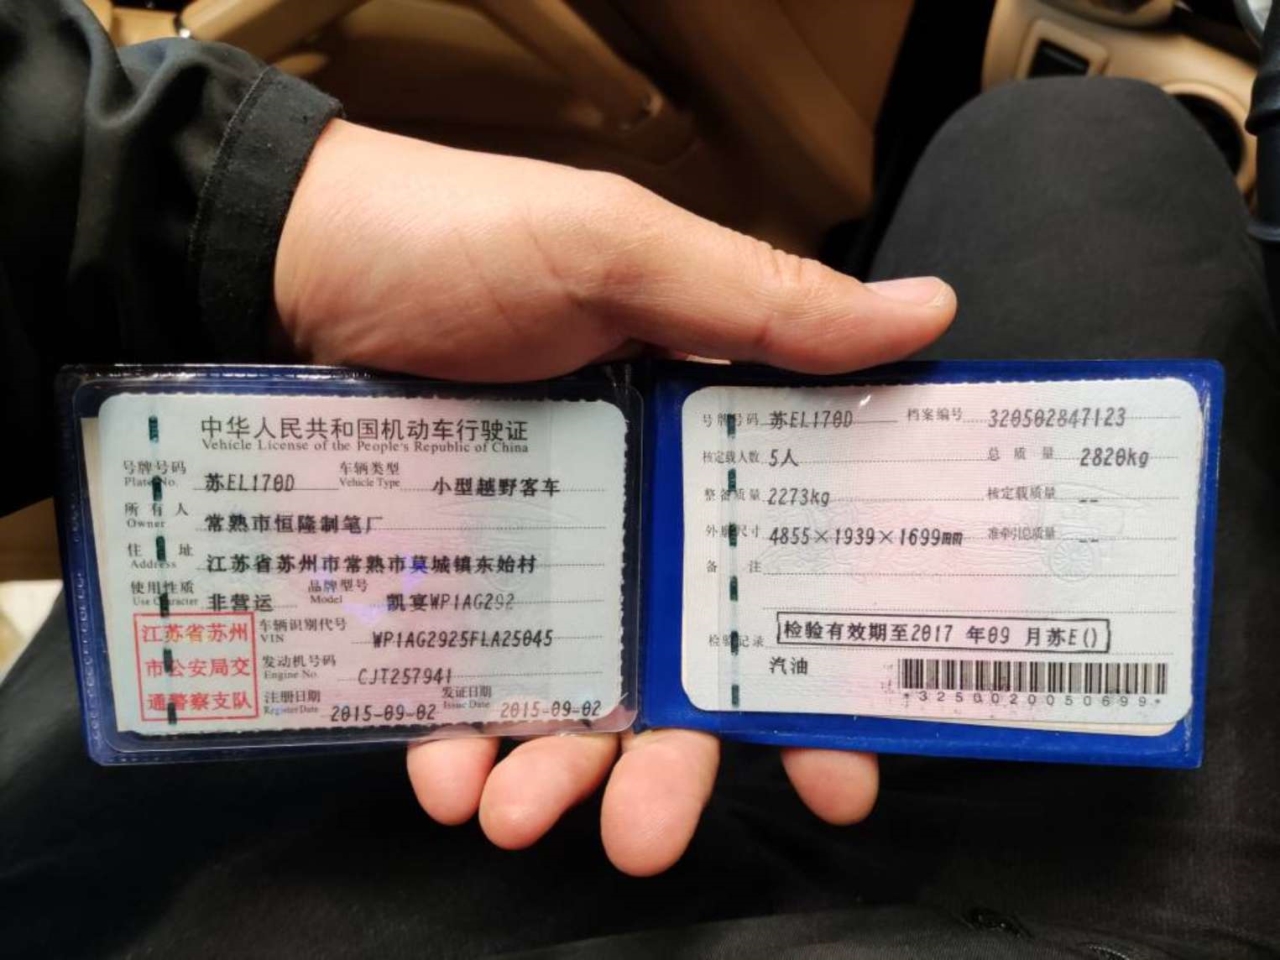 中华人民共和国机动车行驶证
Vehicle License of the People's Republic of China
号牌号码 苏EL170D 车辆类型 小型越野客车
Plate No. Vehicle Type
所有人 常熟市恒隆制笔厂
Owner
住址 江苏省苏州市常熟市莫城镇东始村
Address
使用性质 非营运 品牌型号 凯宴WP1AG292
Use Character Model
江苏省苏州
市公安局交
通警察支队
车辆识别代号 WP1AG2925FLA25045
VIN
发动机号码 CJT257941
Engine No.
注册日期 2015-09-02 发证日期 2015-09-02
Register Date Issue Date
号牌号码 苏EL170D 档案编号 320502847123
核定载人数 5人 总质量 2820kg
整备质量 2273kg 核定载质量 --
外廓尺寸 4855×1939×1699mm 准牵引总质量 --
备注
检验记录 检验有效期至2017年09月苏E()
汽油
*3250020050699*